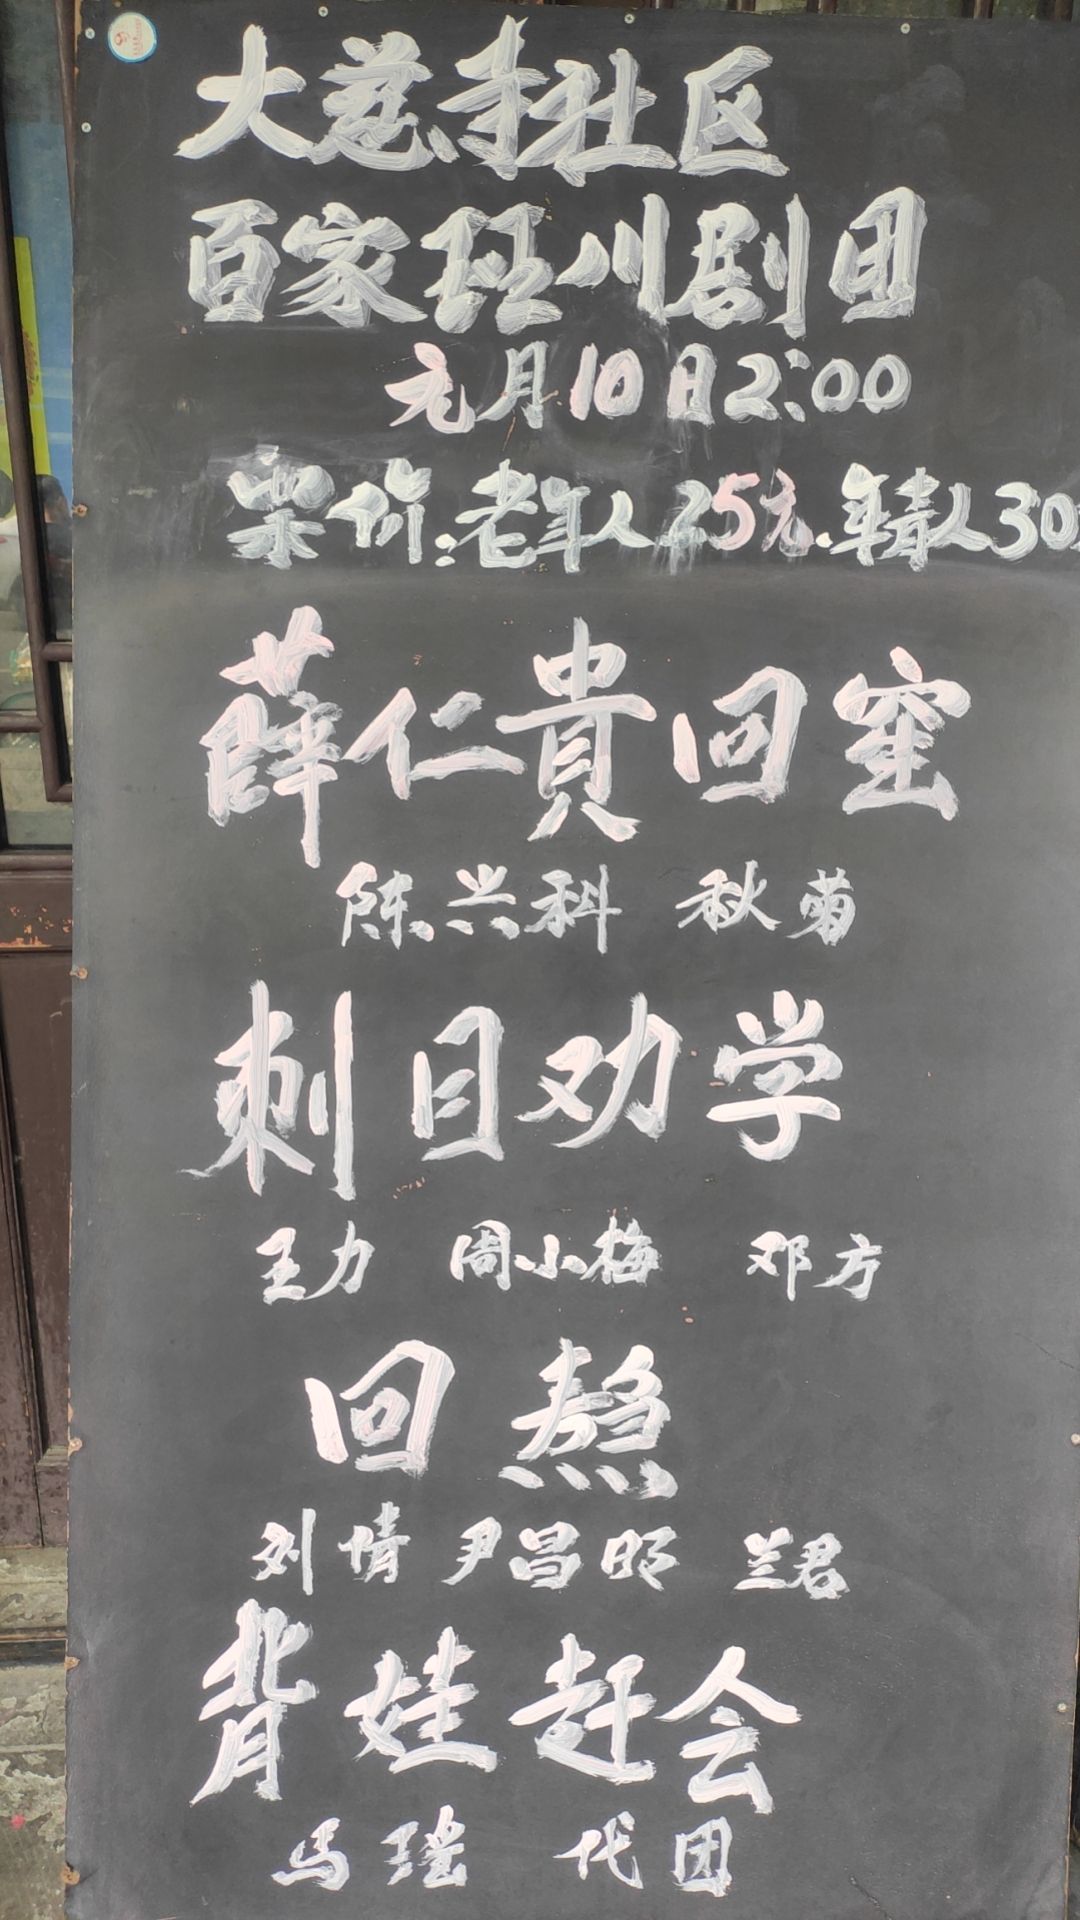 大慈寺社区
百家班川剧团
元月10日2:00
票价:老年人25元.年青人30
薛仁貴回窑
陈兴科 秋菊
刺目劝学
王力 周小梅 邓方
回熬
刘情 尹昌明 兰君
背娃赶会
马瑶 代团